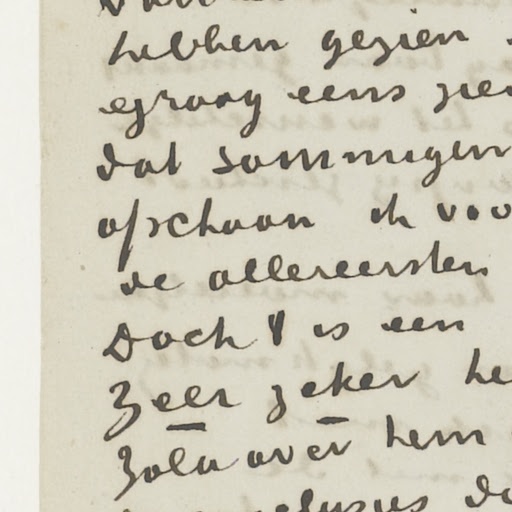 hebben gezien
graag eens zie
dat sommigen
ofschoon ik voo
de allereersten
Doch 't is een
Zeer zeker he
Zola over hem